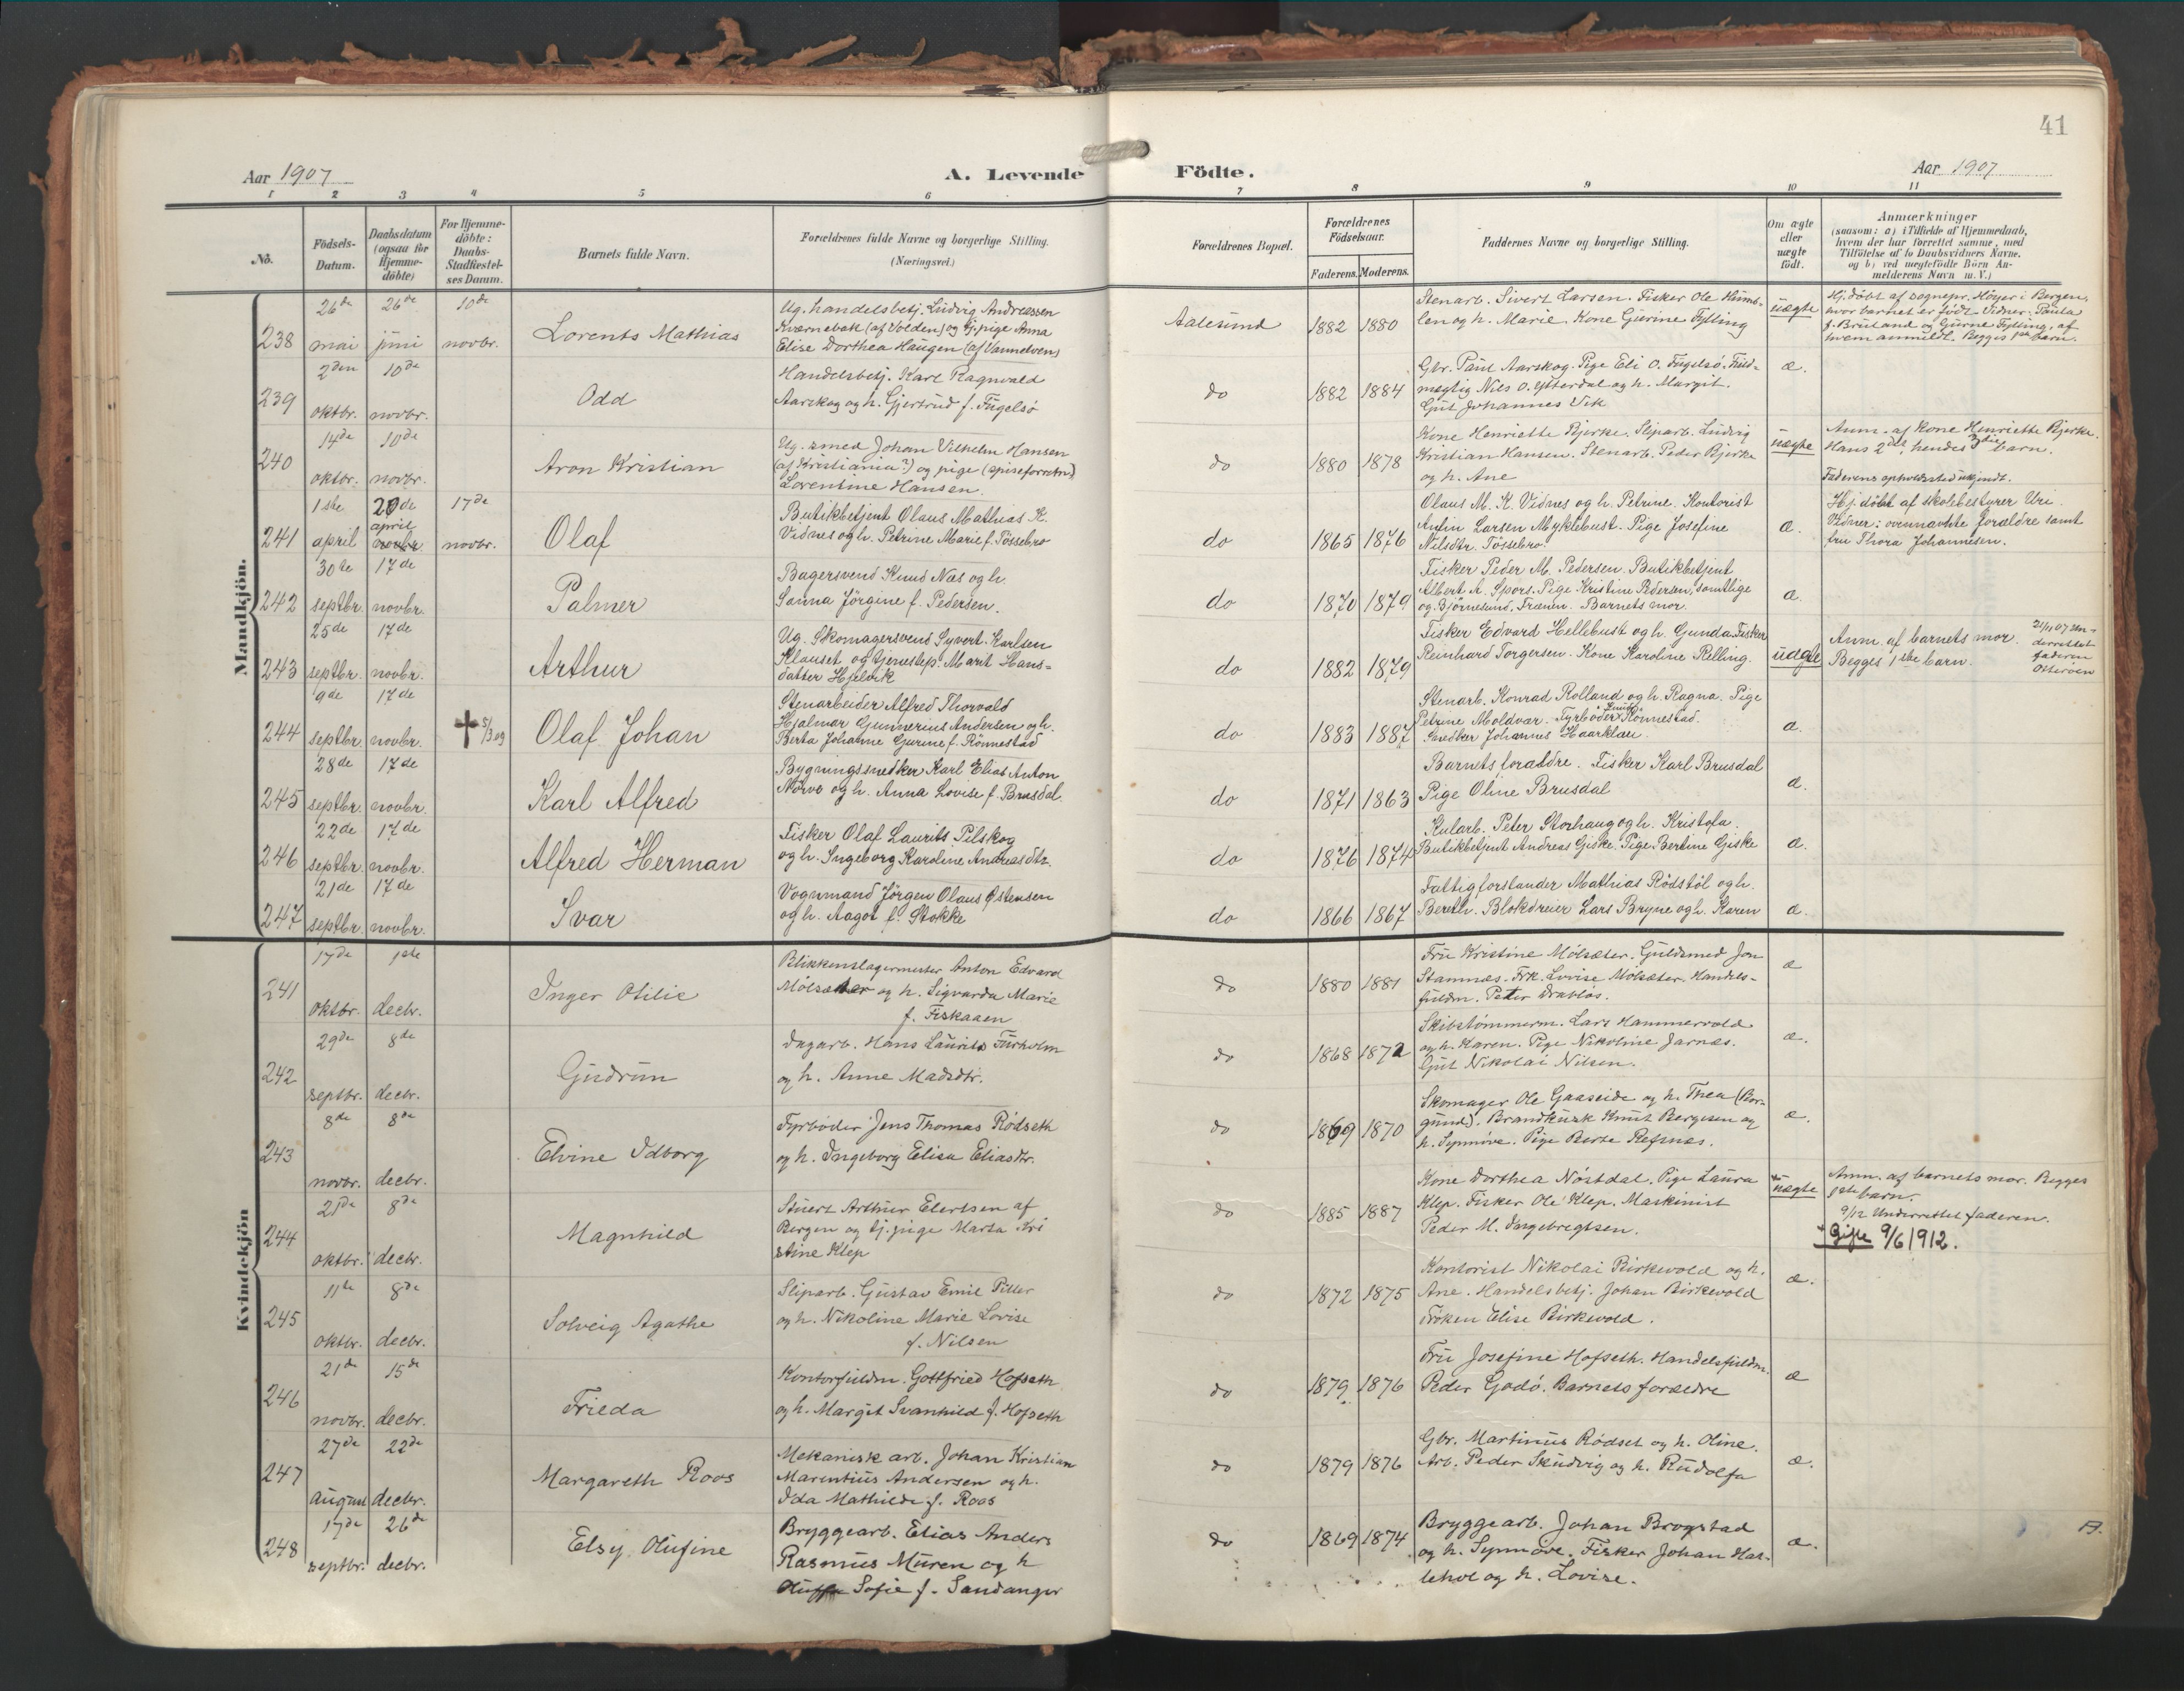 41
Aar 1907
A. Levende Födte.
Aar 1907
1 2 3 4 5 6 7 8 9 10 11
No.
Födsels-
Datum.
Daabsdatum
(ogsaa for
Hjemme-
döbte)
For Hjemme-
döbte:
Daabs-
Stadfæstel-
ses Datum.
Barnets fulde Navn.
Forældrenes fulde Navne og borgerlige Stilling.
(Næringsvei.)
Forældrenes Bopæl.
Forældrenes
Födselsaar.
Faderens. Moderens.
Faddernes Navne og borgerlige Stilling.
Om ægte
eller
uægte
födt.
Anmærkninger
(saasom: a) i Tilfælde af Hjemmedaab,
hvem der har forrettet samme, med
Tilföielse af to Daabsvidners Navne.
og b) ved uægtefödte Börn An-
melderens Navn m. V.)
Mandkjön.
238
26de mai
26de juni
10de novbr.
Lorents Mathias
Ug. handelsbetj. Ludvig Andreassen
Kværnebak (af Volden) og tj. pige Anna
Elise Dorthea Haugen (af Vannelven)
Aalesund
1882 1880
Stenarb. Sivert Larsen. Fisker Ole Humb-
len og h. Marie. Kone Gurine Fylling
uægte
Hj. döbt af sognepr. Höyer i Bergen,
hvor barnet er födt. Vidner: Paula
f. Bruland og Gurine Fylling, af
hvem anmeldt. Begges 1ste barn.
239
2den oktbr.
10de novbr.
Odd
Handelsbetj. Karl Ragnvald
Aarskog og h. Gjertrud f. Fugelsö
do
1882 1884
Gbr. Paul Aarskog. Pige Eli O. Fugelsö. Fuld-
mægtig Nils O. Ytterdal og h. Margit.
Gut Johannes Vik
æ.
240
14de oktbr.
10de novbr.
Aron Kristian
Ug. smed Johan Vilhelm Hansen
(af Kristiania?) og pige (spiseforretn.)
Lorentine Hansen.
do
1880 1878
Kone Henriette Bjerke. Sliparb. Ludvig
Kristian Hansen. Stenarb. Peder Bjerke
og h. Ane
uægte
Anm. af Kone Henriette Bjerke.
Hans 2det, hendes 3die barn.
Faderens opholdssted ukjendt.
241
1ste april
20de april novbr.
17de novbr.
Olaf
Butikbetjent Olaus Mathias K.
Vidnes og h. Petrine Marie f. Tössebro
do
1865 1876
Olaus M. K. Vidnes og h. Petrine. Kontorist
Anfin Larsen Myklebust. Pige Josefine
Nilsdtr. Tössebro.
æ.
Hj. döbt af skolebestyrer Uri.
Vidner: ovennævnte forældre samt
fru Thora Johannesen.
242
30te septbr.
17de novbr.
Palmer
Bagersvend Knud Næs og h.
Sanna Jörgine f. Pedersen.
do
1870 1879
Fisker Peder M. Pedersen. Butikbetjent
Albert A. Spors. Pige Kristine Pedersen, samtlige
og Björnesund, Frænen. Barnets mor.
æ.
243
25de septbr.
17de novbr.
Arthur
Ug. Skomagersvend Syvert Karlsen
Klauset og tjenestep. Marit Hans-
datter Hjelvik
do
1882 1879
Fisker Edvard Hellebust og h. Gunda. Fisker
Reinhard Torgersen. Kone Karoline Relling.
uægte
Anm. af barnets mor.
Begges 1ste barn.
21/11 07 un-
derrettet
faderen
Osteröen
244
9de septbr.
17de novbr.
✝ 5/3 09
Olaf Johan
Stenarbeider Alfred Thorvald
Hjalmar Gunnerius Andersen og h.
Berta Johanne Gurine f. Rönnestad
do
1883 1887
Stenarb. Konrad Rolland og h. Ragna. Pige
Petrine Moldvær. Fyrböder Rönnestad.
Snedker Johannes Haarklau.
æ.
245
28de septbr.
17de novbr.
Karl Alfred
Bygningssnedker Karl Elias Anton
Nörve og h. Anna Lovise f. Brusdal.
do
1871 1863
Barnets forældre. Fisker Karl Brusdal
Pige Oline Brusdal
æ.
246
22de septbr.
17de novbr.
Alfred Herman
Fisker Olaf Laurits Pilskog
og h. Ingeborg Karoline Andreasdtr.
do
1876 1874
Kularb. Peter Storhaug og h. Kristofa.
Butikbetjent Andreas Giske. Pige Bertine Giske
æ.
247
21de septbr.
17de novbr.
Ivar
Vognmand Jörgen Olaus Östensen
og h. Aagot f. Stokke
do
1866 1867
Fattigforstander Mathias Rödstöl og h.
Bereth. Blokdreier Lars Bryne og h. Karen
æ.
Kvindekjön
241
17de oktbr.
1ste decbr.
Inger Otilie
Blikkenslagermester Anton Edvard
Mölsæter og h. Sigvarda Marie
f. Fiskaaen
do
1880 1881
Fru Kristine Mölsæter. Guldsmed Jon
Stamnæs. Frk. Lovise Mölsæter. Handels-
fuldm. Peter Drablös.
æ
242
29de septbr.
8de decbr.
Gudrun
Dagarb. Hans Laurits Furholm
og h. Anne Madsdtr.
do
1868 1872
Skibstömmerm. Lars Hammervold
og h. Karen. Pige Nikoline Jarnæs.
Gut Nikolai Nilsen.
æ.
243
8de novbr.
8de decbr.
Elvine Idborg
Fyrböder Jens Thomas Rödseth
og h. Ingeborg Elisa Eliasdtr.
do
1869 1870
Skomager Ole Gaaseide og h. Thea (Bor-
gund). Brandkusk Knut Bergesen og
h. Synnöve. Pige Berte Refsnæs.
æ.
244
21de oktbr.
8de decbr.
Magnhild
Stuert Arthur Elertsen af
Bergen og tj. pige Marta Kri
stine Klep
do
1885 1887
Kone Dorthea Nöstdal. Pige Laura
Klep. Fisker Ole Klep. Maskinist
Peder M. Ingebregtsen.
uægte
Anm. af barnets mor. Begges
1ste barn.
9/12 Underrettet faderen.
+ Gifte 9/6 1912.
245
11te oktbr.
8de decbr.
Solveig Agathe
Sliparb. Gustav Emil Piller
og h. Nikoline Marie Lovise
f. Nilsen
do
1872 1875
Kontorist Nikolai Birkevold og h.
Ane. Handelsbetj. Johan Birkevold
Fröken Elise Birkevold.
æ.
246
21de novbr.
15de decbr.
Frieda
Kontorfuldm. Gottfried Hofseth
og h. Margit Svanhild f. Hofseth
do
1879 1876
Fru Josefine Hofseth. Handelsfuldm.
Peder Godö. Barnets forældre
æ
247
27de august
22de decbr.
Margareth Roos
Mekanisk arb. Johan Kristian
Marentius Andersen og h.
Ida Mathilde f. Roos
do
1879 1876
Gbr. Martinus Rödset og h. Oline.
Arb. Peder Skudvig og h. Rudolfa
æ.
248
17de septbr.
26de decbr.
Elsy Olufine
Bryggearb. Elias Anders
Rasmus Muren og h
Sofie f. Sandanger
do
1869 1874
Bryggearb. Johan Brogstad
og h. Synnöve. Fisker Johan Has-
lehol og h. Lovise.
æ.